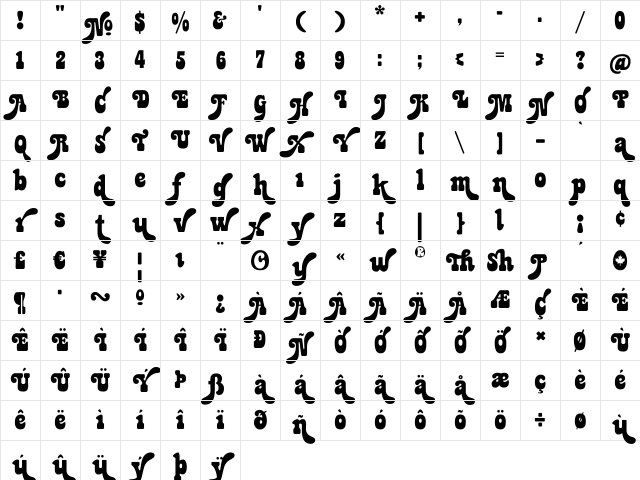 ! " № $ % & ' ( ) * + , - . / 0
1 2 3 4 5 6 7 8 9 : ; < = > ? @
A B C D E F G H I J K L M N O P
Q R S T U V W X Y Z [ \ ] – ` a
b c d e f g h ı j k l m n o p q
r s t u v w x y z { | } l ¡ ¢
£ € ¥ ¦ ı ¨ © y « w ® Th Sh P ´
¶ · ~ º » ¿ À Á Â Ã Ä Å Æ ç È É
Ê Ë Ì Í Î Ï Ð Ñ Ò Ó Ô Õ Ö × Ø Ù
Ú Û Ü Ý Þ ß à á â ã ä å æ ç è é
ê ë ì í î ï ð ñ ò ó ô õ ö ÷ ø ù
ú û ü ý þ ÿ